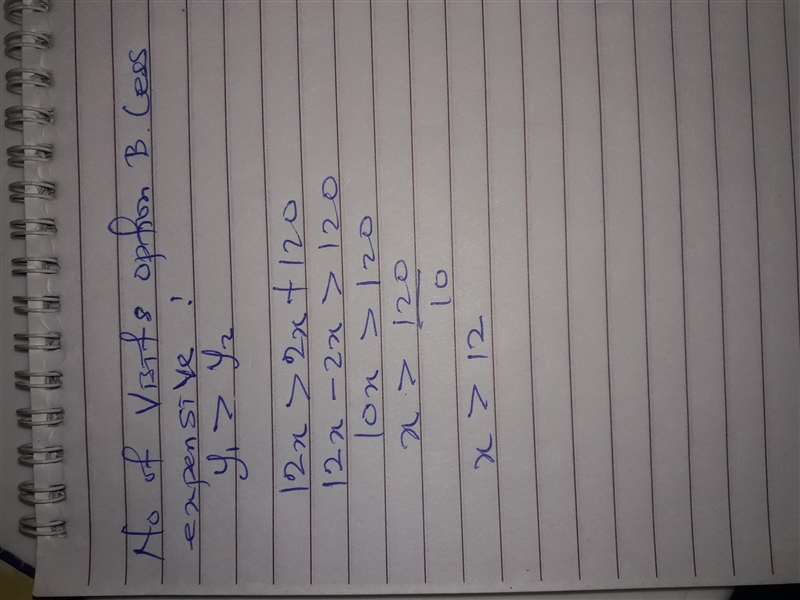 No of Visits option B. Less
expensive :
y₁ > y₂
12x > 2x + 120
12x - 2x > 120
10x > 120
x > 120/10
x > 12